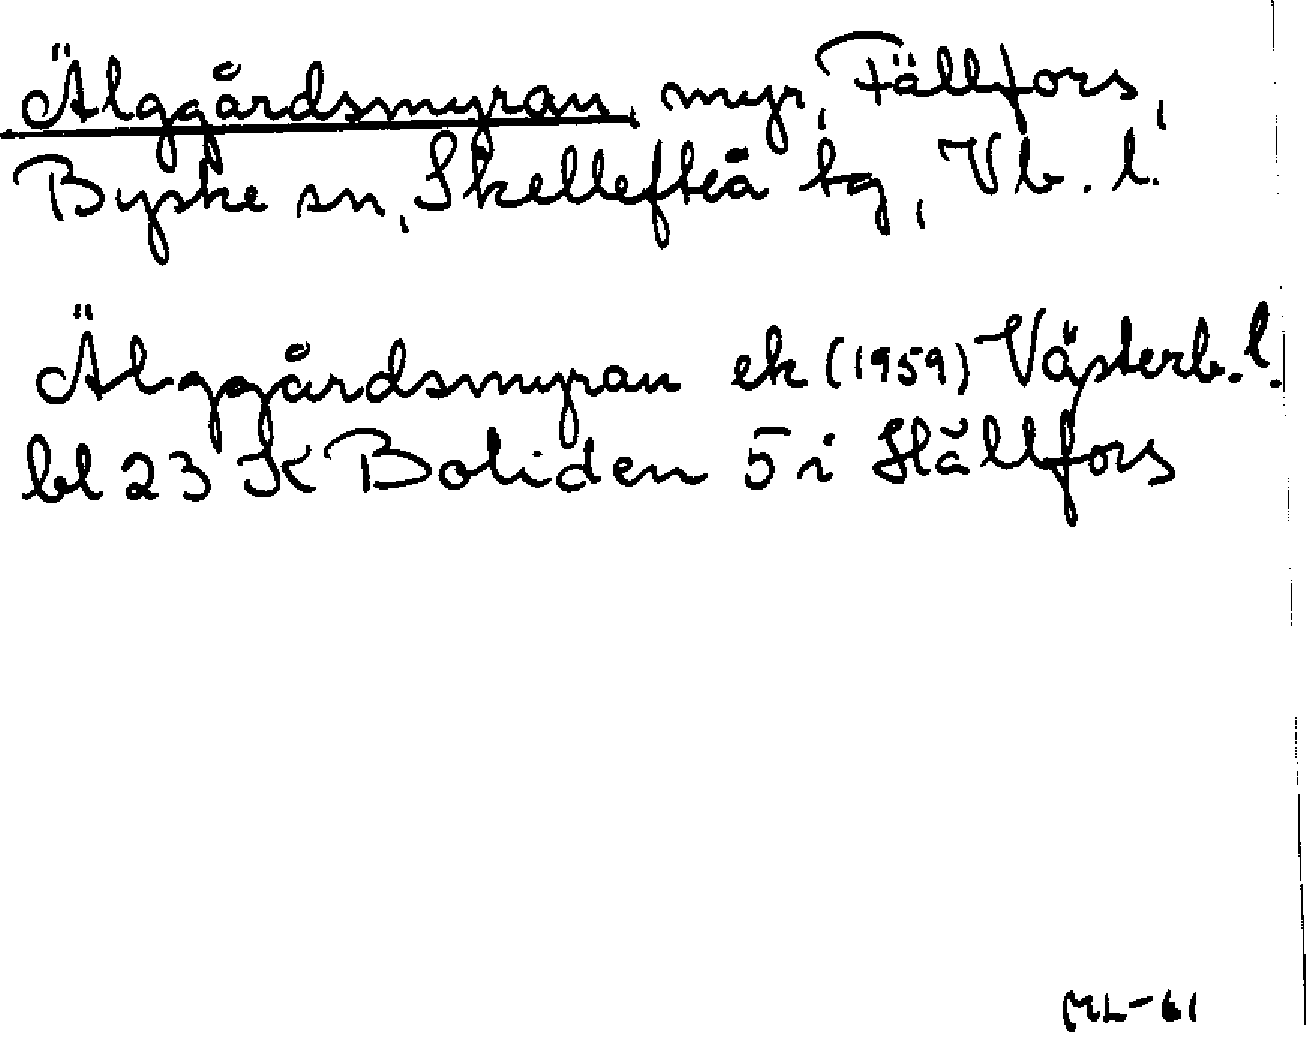 Älggårdsmyran, myr, Fällfors,
Byske sn, Skellefteå tg, Vb. l.
Älggårdsmyran ek (1959) Västerb. l.
bl 23 K Boliden 5 i Hällfors
ML-61